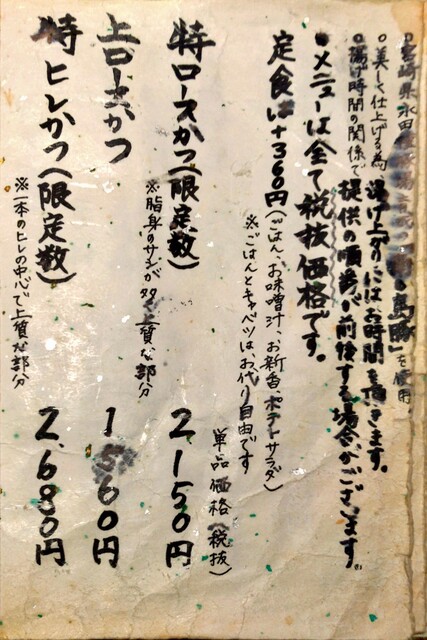 ○宮崎県永田種豚場生産の「南の島豚」を使用。
○美しく仕上げる為、揚げ上がりにはお時間を頂きます。
○揚げ時間の関係で提供の順番が前後する場合がございます。
●メニューは全て税抜価格です。
定食は+360円(ごはん、お味噌汁、お新香、ポテトサラダ)
※ごはんとキャベツは、お代り自由です
単品価格(税抜)
特ロースかつ(限定数) 2,150円
※脂身のサシが多く上質な部分
上ロースかつ 1,560円
特ヒレかつ(限定数) 2,680円
※一本のヒレの中心で上質な部分